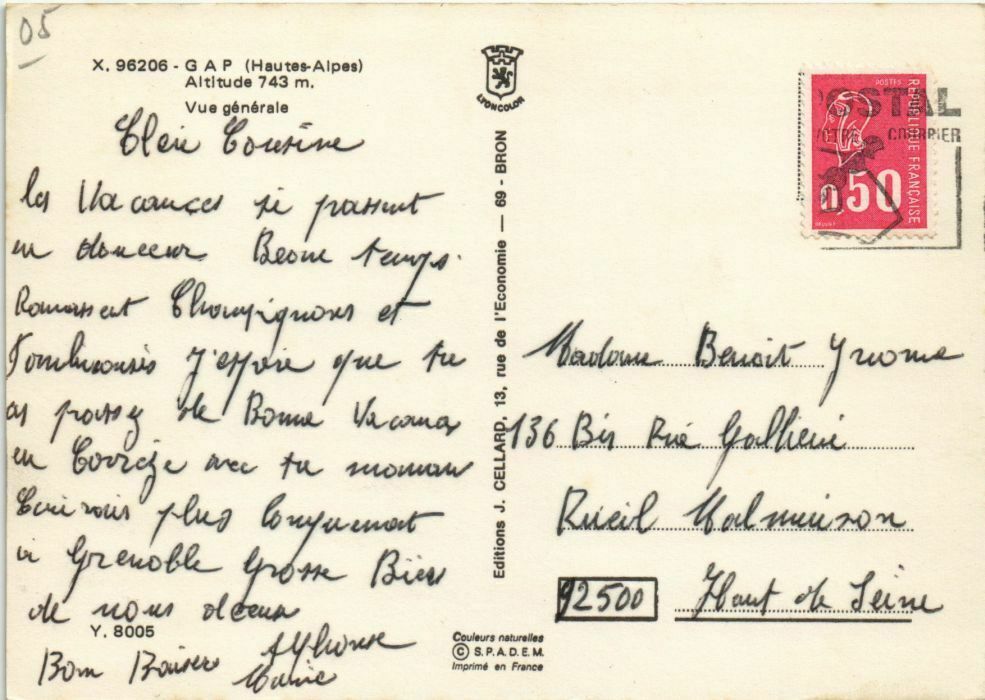 05
X. 96206 - GAP (Hautes-Alpes)
Altitude 743 m.
Vue générale
Cher Cousine
les Vacances se passent
en douceur Beau temps.
Ramassent Champignons et
J'espère que tu
as passez de Bonne Vacances
en Corrèze avec ta maman
plus longuement
à Grenoble Grosse Bises
de nous deux
Bon Baiser Alphonse
Marie
Y. 8005
LYONCOLOR
Editions J. CELLARD, 13, rue de l'Economie — 69 - BRON
Couleurs naturelles
© S.P.A.D.E.M.
Imprimé en France
POSTES
RÉPUBLIQUE FRANÇAISE
0,50
POSTAL
VOTRE COURRIER
Madame Benoit Yvonne
136 Bis Rue Gallieni
Rueil Malmaison
92500 Haut de Seine